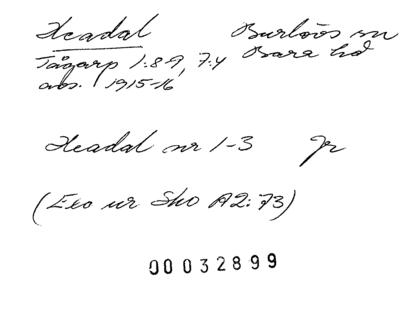 Headal Burlövs sn
Tågarp 1:8-9, 7:4 Bara hd
avs. 1915-16
Headal nr 1-3 Jr
(Exo ur Sko A2:73)
00032899